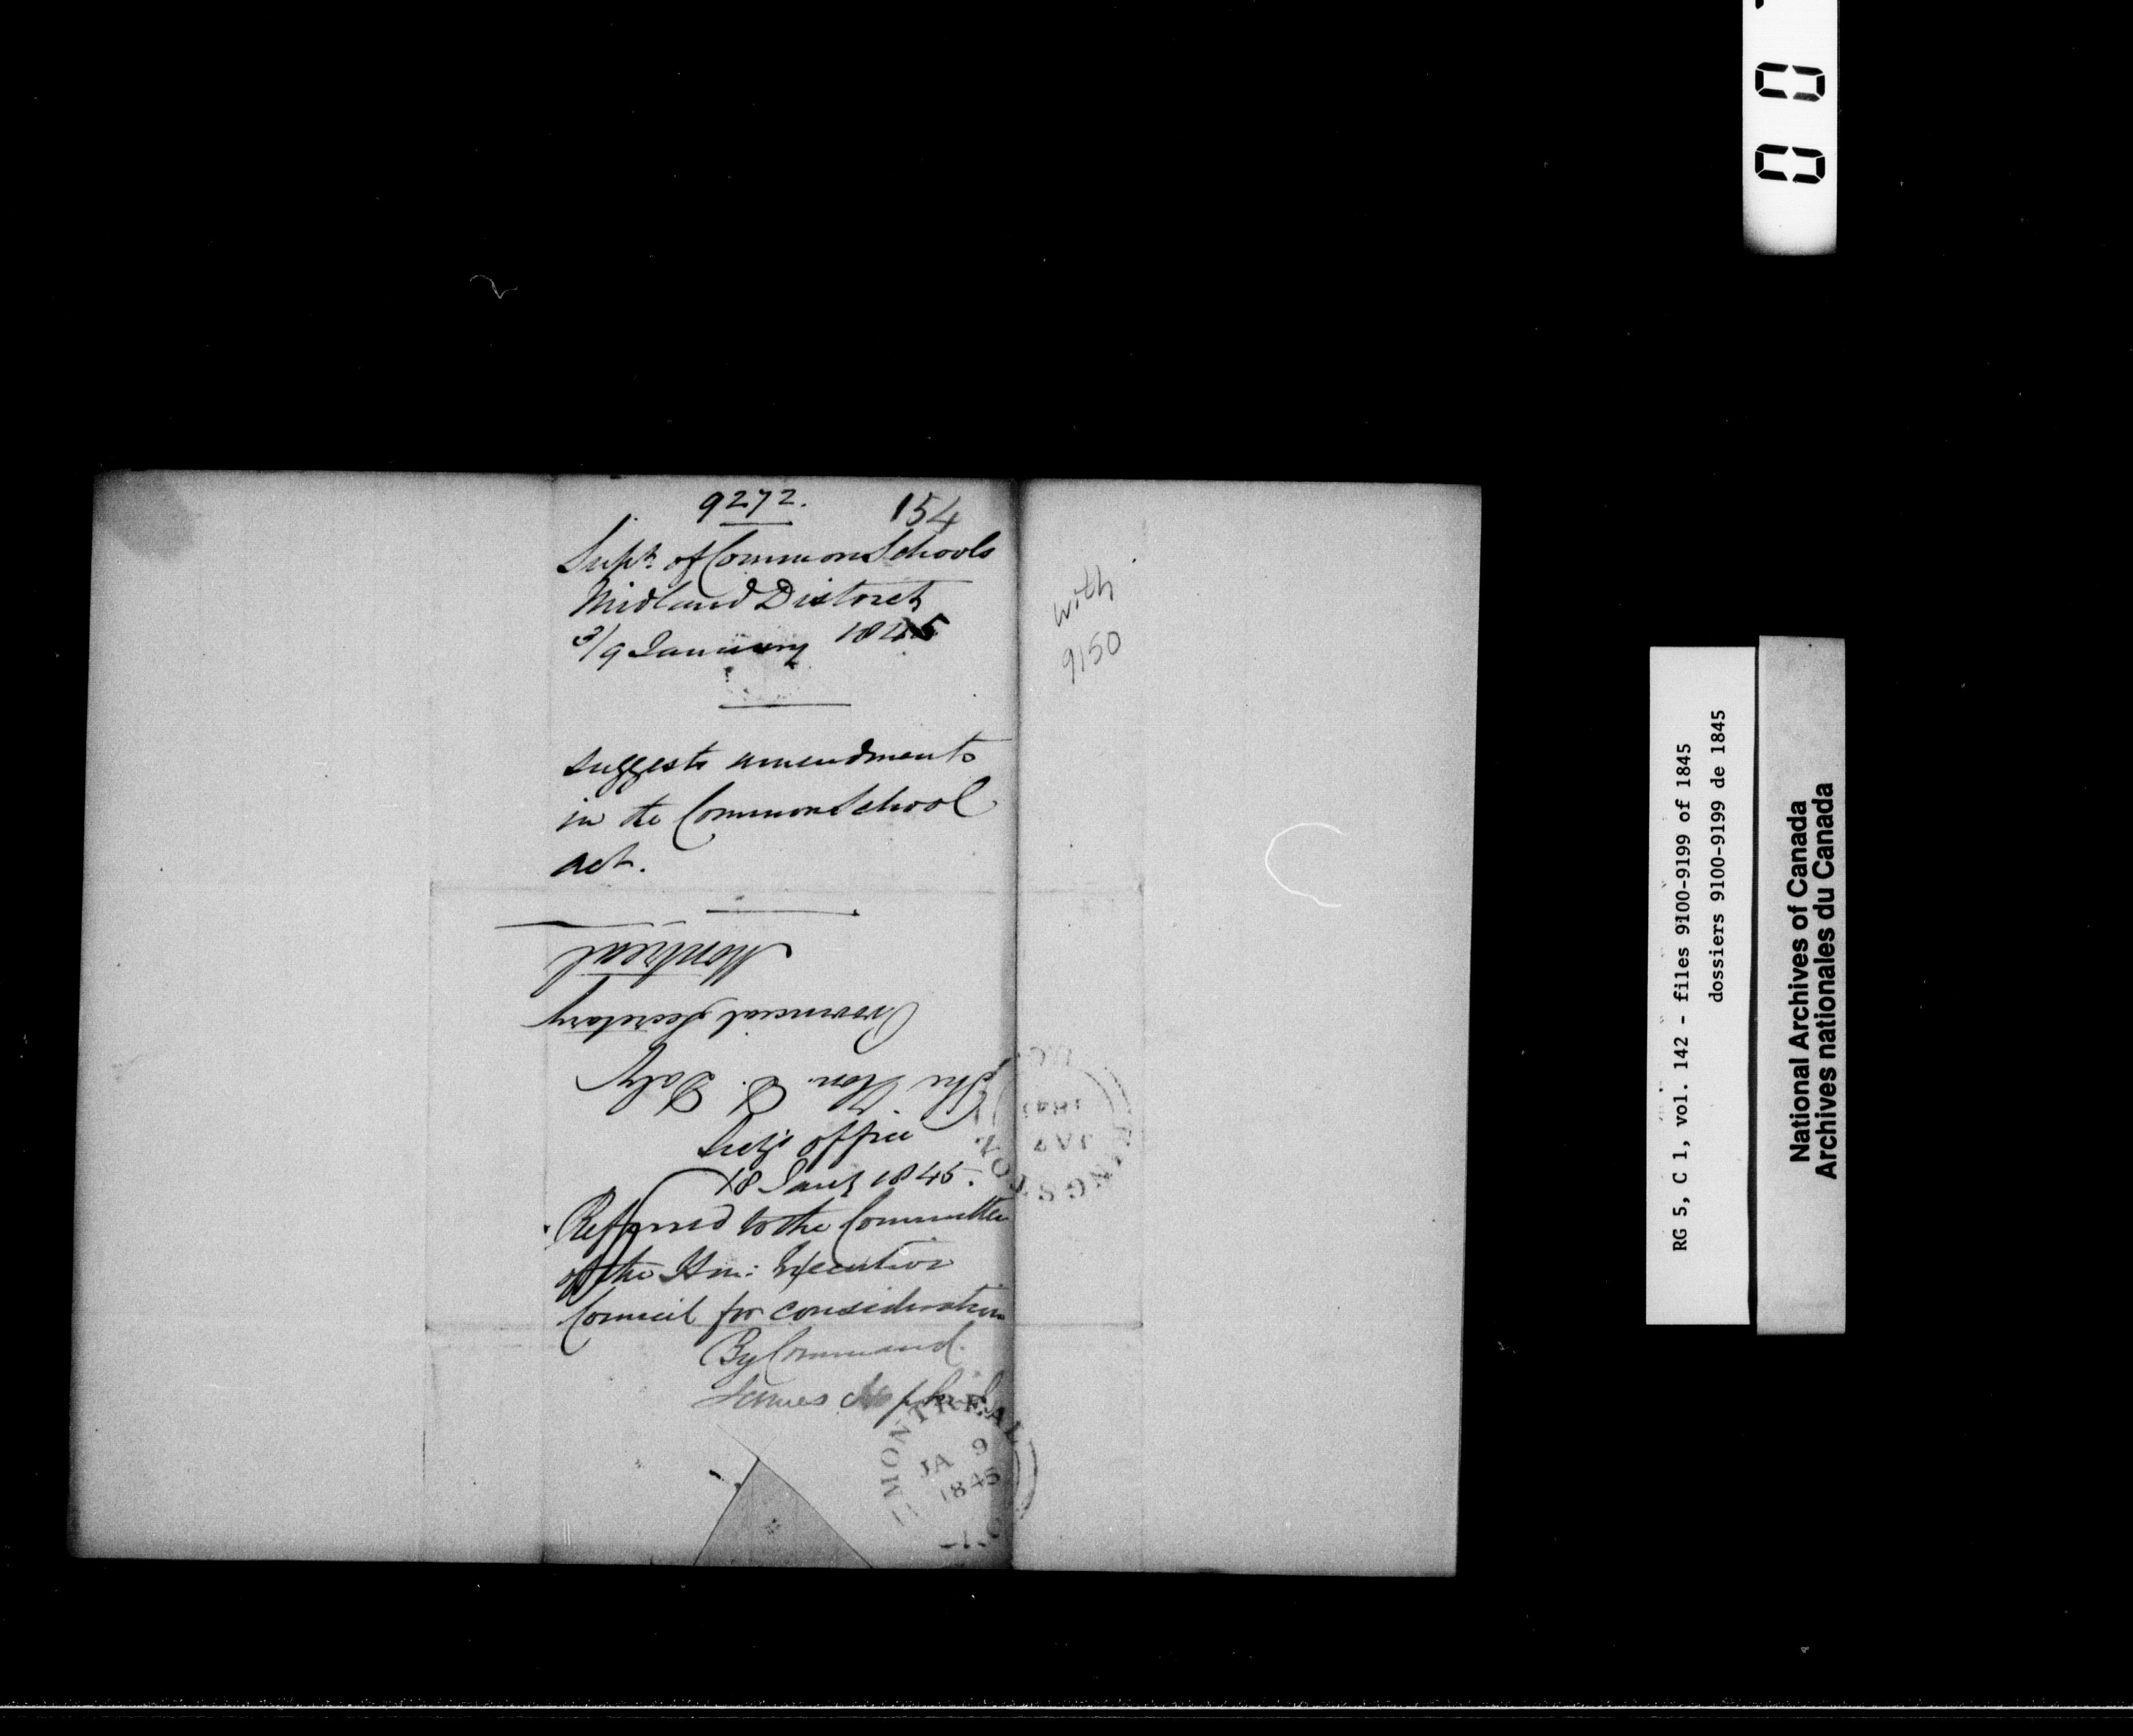 9272.
154
Supt. of Common Schools
Midland District
3/9 January 1845
suggests amendments
in the Common School
act.
The Hon. D. Daly
Provincial Secretary
Montreal
Secy's office
18 Jany 1845.
Referred to the Committee
of the Hon: Executive
Council for consideration
By Command.
James
with
9150
KINGSTON
U.C.
MONTREAL
JA 9
1845
L.C
RG 5, C 1, vol. 142 - files 9100-9199 of 1845
dossiers 9100-9199 de 1845
National Archives of Canada
Archives nationales du Canada
0 0